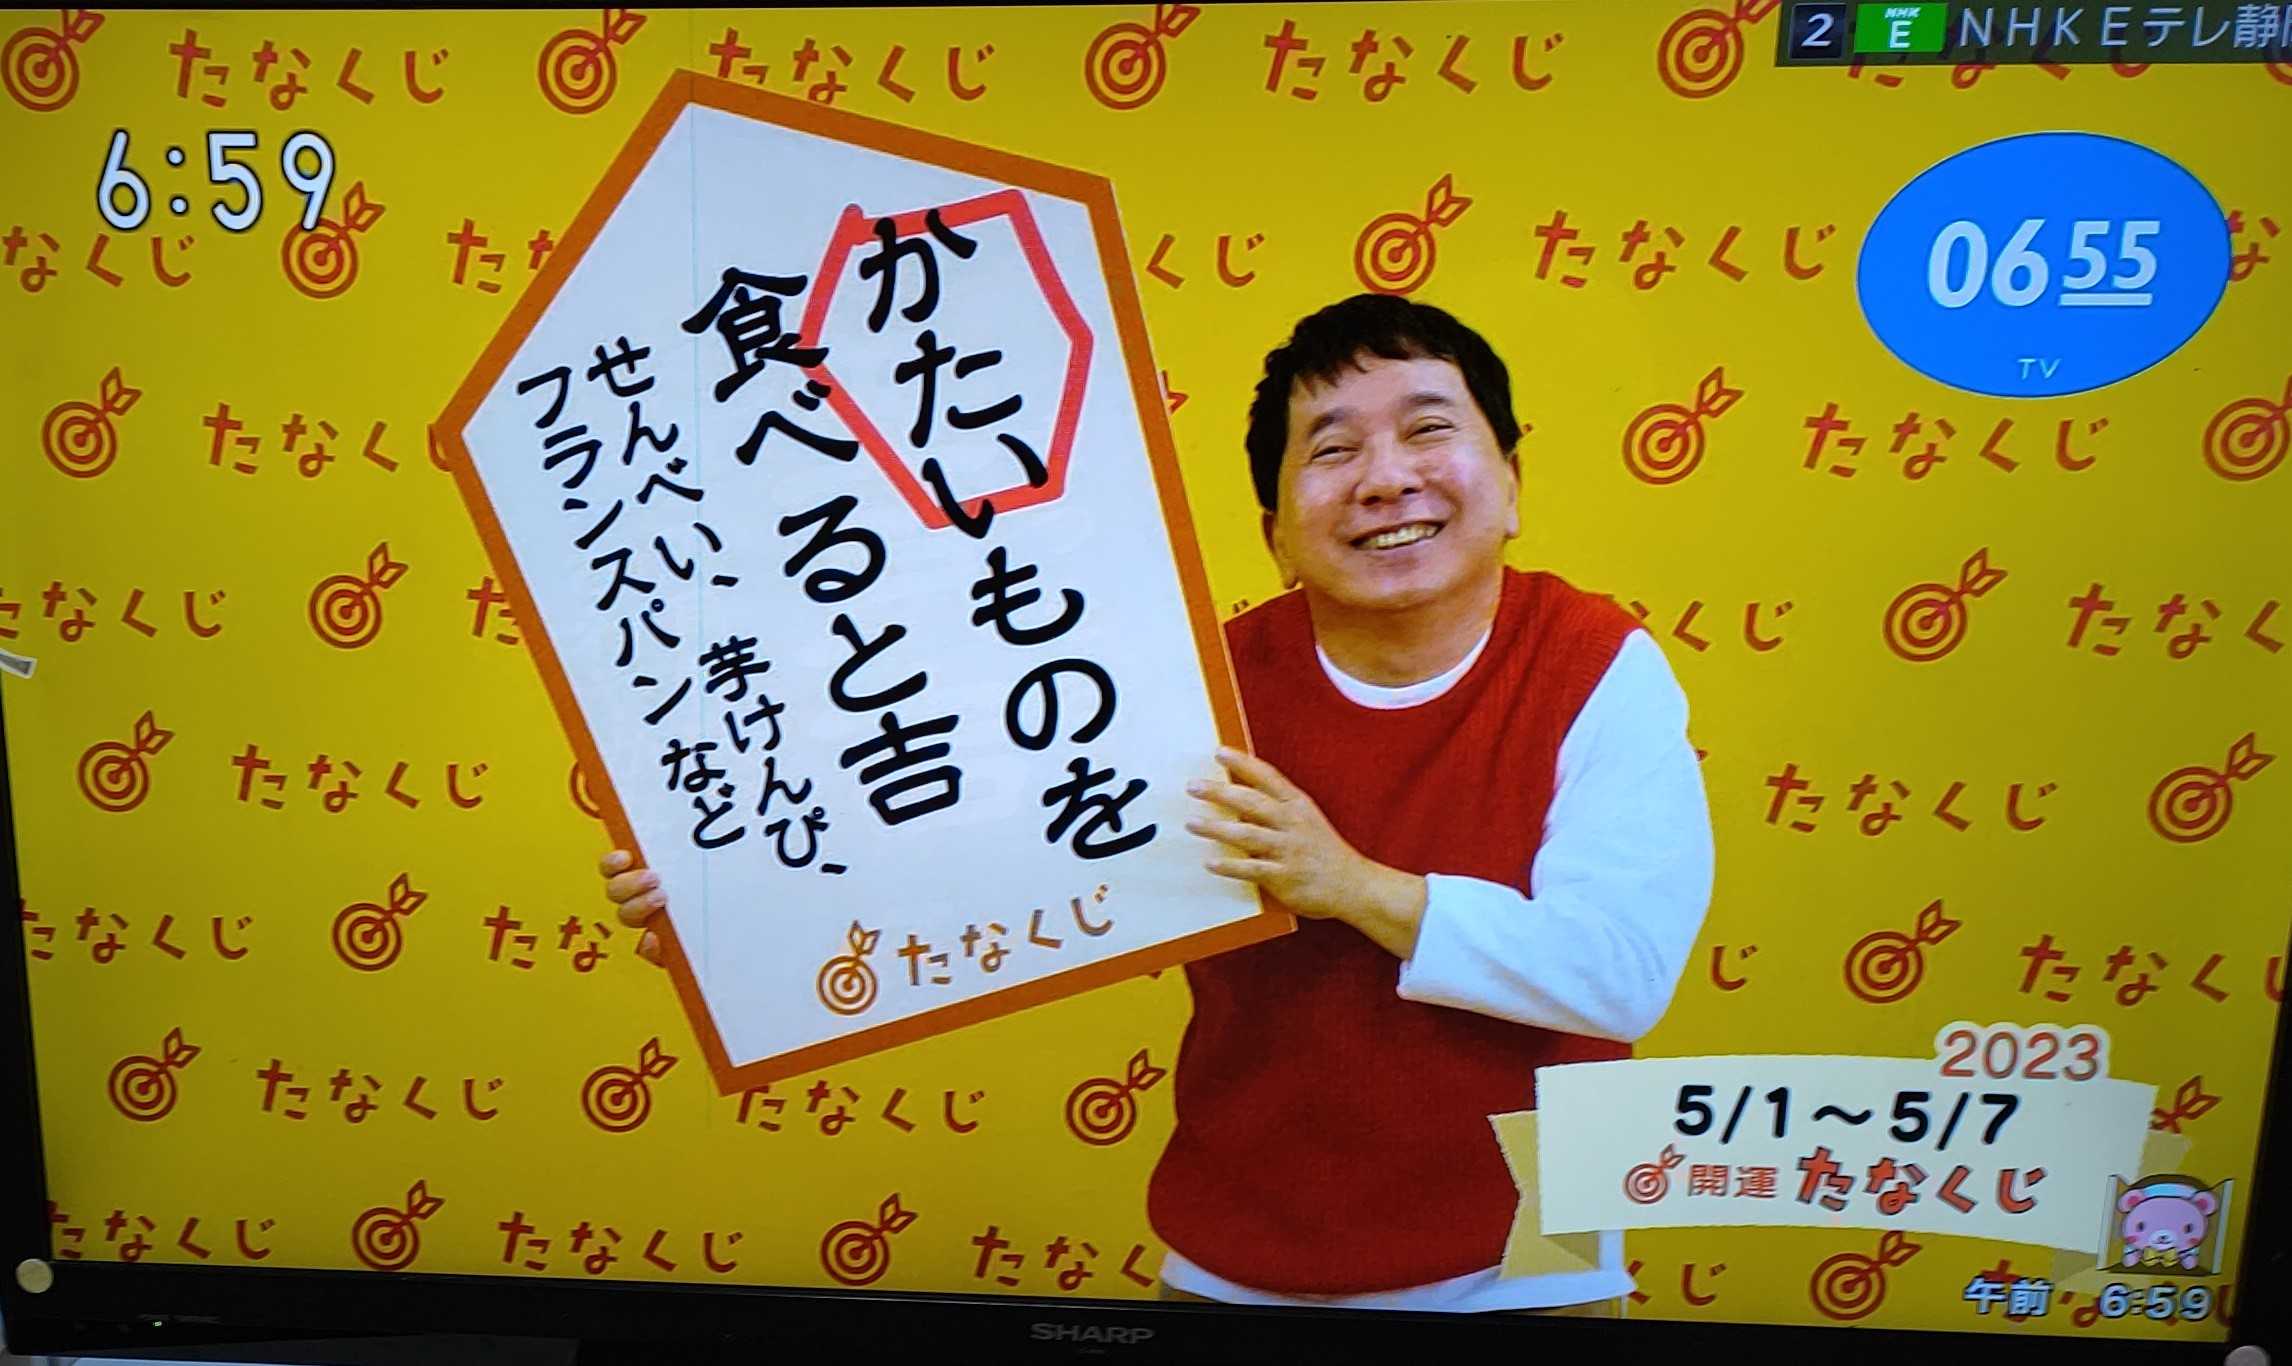 2 NHK E NHK Eテレ静
6:59
0655
TV
かたいものを
食べると吉
せんべい、芋けんぴ、
フランスパンなど
たなくじ
2023
5/1～5/7
開運たなくじ
午前 6:59
SHARP